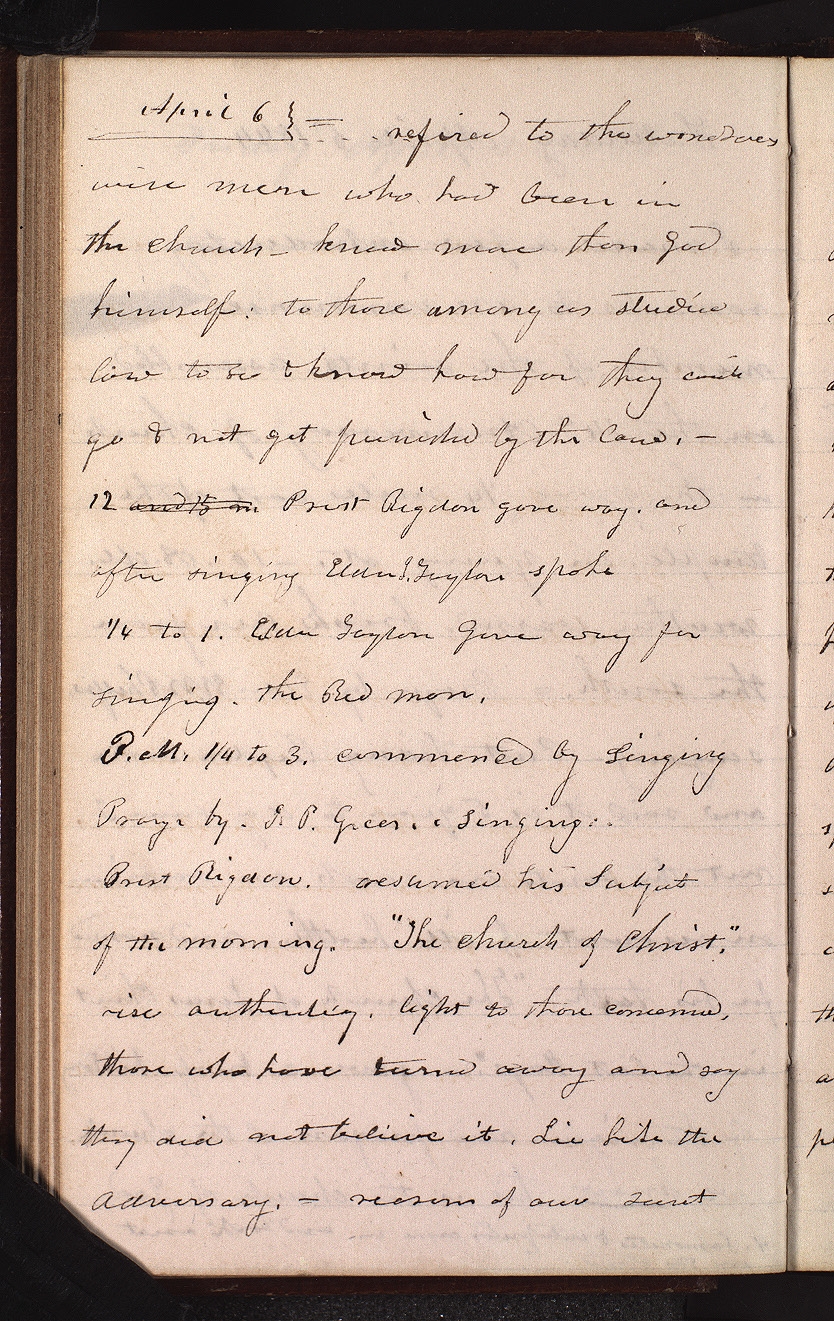 April 6 } = refired to the wonderous
wise men who had been in
the church - knew more than God
himself: to those among us studied
law to see & know how far they could
go & not get punished by the law. —
12 and 15 m Prest Rigdon gave way. and
after singing Elder J. Taylor spoke
1/4 to 1. Elder Taylor Gave way for
singing. the Red man.
P.M. 1/4 to 3. commenced by Singing
Prayer by. J. P. Green. & Singing:.
Prest Rigdon. resumed his Subject
of the morning. "The church of Christ."
rise authenticy. light to those concerned,
those who have turned away and say
they did not believe it. Lie like the
adversary. — reason of our secret